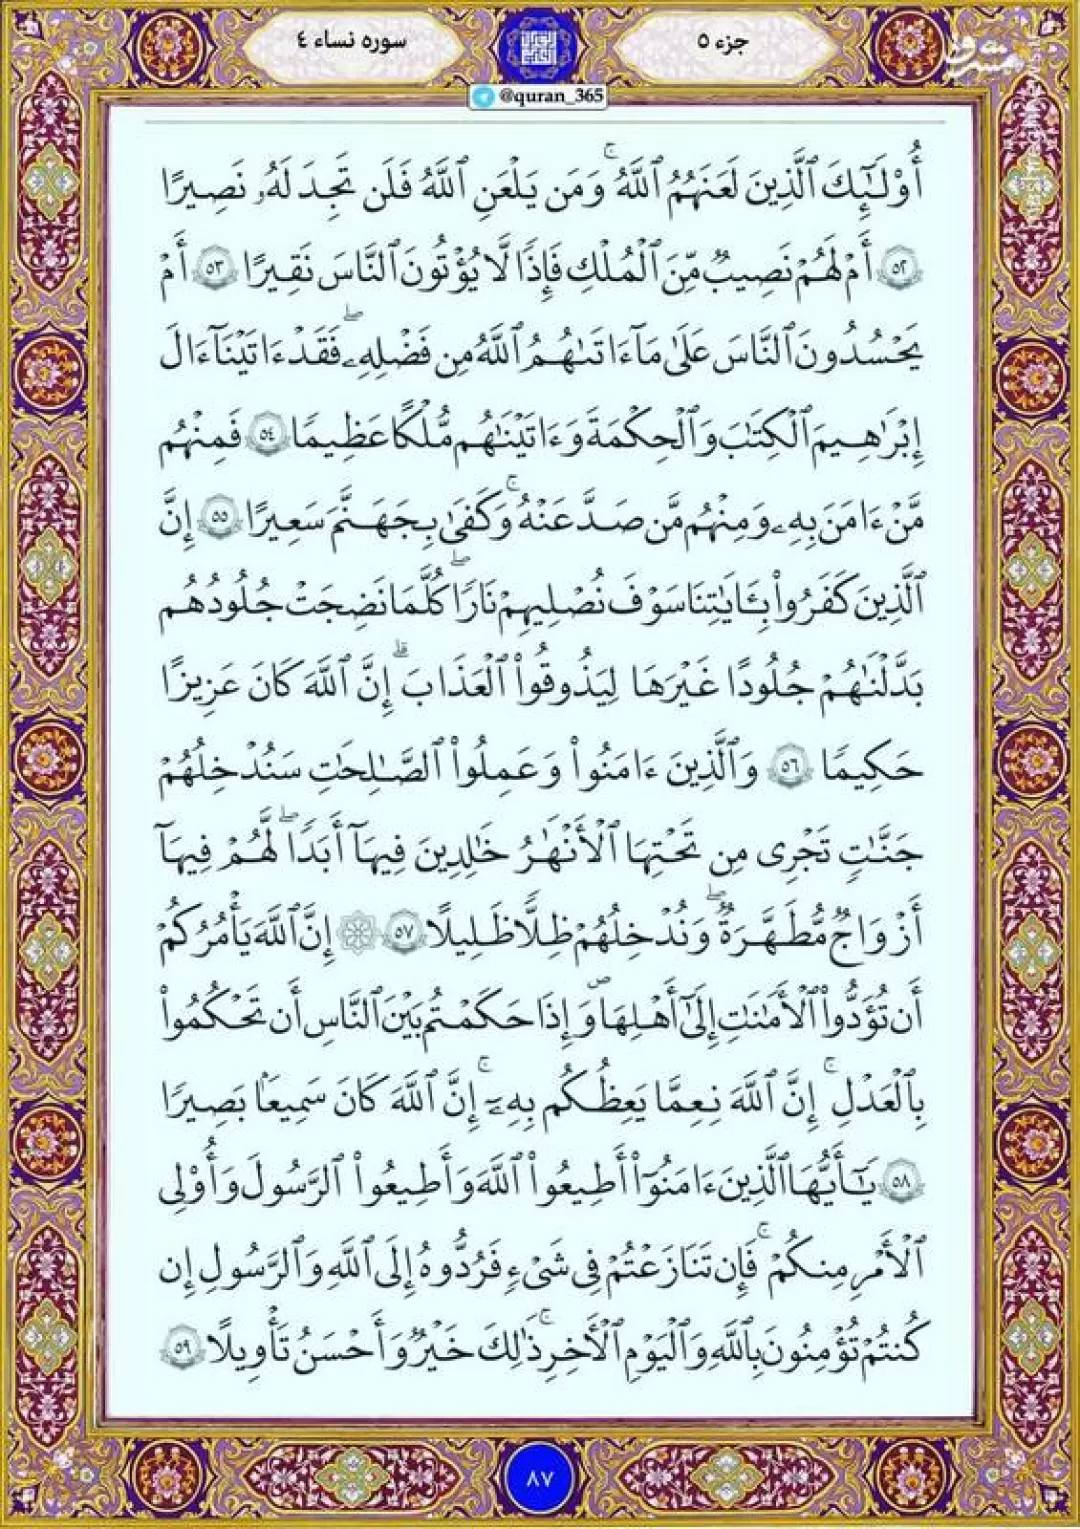 جزء ٥
سوره نساء ٤
@quran_365
أُوْلَٰٓئِكَ ٱلَّذِينَ لَعَنَهُمُ ٱللَّهُۖ وَمَن يَلْعَنِ ٱللَّهُ فَلَن تَجِدَ لَهُۥ نَصِيرًا
٥٢ أَمْ لَهُمْ نَصِيبٌ مِّنَ ٱلْمُلْكِ فَإِذًا لَّا يُؤْتُونَ ٱلنَّاسَ نَقِيرًا ٥٣ أَمْ
يَحْسُدُونَ ٱلنَّاسَ عَلَىٰ مَآ ءَاتَىٰهُمُ ٱللَّهُ مِن فَضْلِهِۦۖ فَقَدْ ءَاتَيْنَآ ءَالَ
إِبْرَٰهِيمَ ٱلْكِتَٰبَ وَٱلْحِكْمَةَ وَءَاتَيْنَٰهُم مُّلْكًا عَظِيمًا ٥٤ فَمِنْهُم
مَّنْ ءَامَنَ بِهِۦ وَمِنْهُم مَّن صَدَّ عَنْهُۚ وَكَفَىٰ بِجَهَنَّمَ سَعِيرًا ٥٥ إِنَّ
ٱلَّذِينَ كَفَرُواْ بِـَٔايَٰتِنَا سَوْفَ نُصْلِيهِمْ نَارًاۖ كُلَّمَا نَضِجَتْ جُلُودُهُم
بَدَّلْنَٰهُمْ جُلُودًا غَيْرَهَا لِيَذُوقُواْ ٱلْعَذَابَۗ إِنَّ ٱللَّهَ كَانَ عَزِيزًا
حَكِيمًا ٥٦ وَٱلَّذِينَ ءَامَنُواْ وَعَمِلُواْ ٱلصَّٰلِحَٰتِ سَنُدْخِلُهُمْ
جَنَّٰتٍ تَجْرِى مِن تَحْتِهَا ٱلْأَنْهَٰرُ خَٰلِدِينَ فِيهَآ أَبَدًاۖ لَّهُمْ فِيهَآ
أَزْوَاجٌ مُّطَهَّرَةٌۖ وَنُدْخِلُهُمْ ظِلًّا ظَلِيلًا ٥٧ ۞ إِنَّ ٱللَّهَ يَأْمُرُكُمْ
أَن تُؤَدُّواْ ٱلْأَمَٰنَٰتِ إِلَىٰٓ أَهْلِهَا وَإِذَا حَكَمْتُم بَيْنَ ٱلنَّاسِ أَن تَحْكُمُواْ
بِٱلْعَدْلِۚ إِنَّ ٱللَّهَ نِعِمَّا يَعِظُكُم بِهِۦٓۚ إِنَّ ٱللَّهَ كَانَ سَمِيعَۢا بَصِيرًا
٥٨ يَٰٓأَيُّهَا ٱلَّذِينَ ءَامَنُوٓاْ أَطِيعُواْ ٱللَّهَ وَأَطِيعُواْ ٱلرَّسُولَ وَأُوْلِى
ٱلْأَمْرِ مِنكُمْۚ فَإِن تَنَازَعْتُمْ فِى شَىْءٍ فَرُدُّوهُ إِلَى ٱللَّهِ وَٱلرَّسُولِ إِن
كُنتُمْ تُؤْمِنُونَ بِٱللَّهِ وَٱلْيَوْمِ ٱلْأَخِرِۚ ذَٰلِكَ خَيْرٌ وَأَحْسَنُ تَأْوِيلًا ٥٩
٨٧